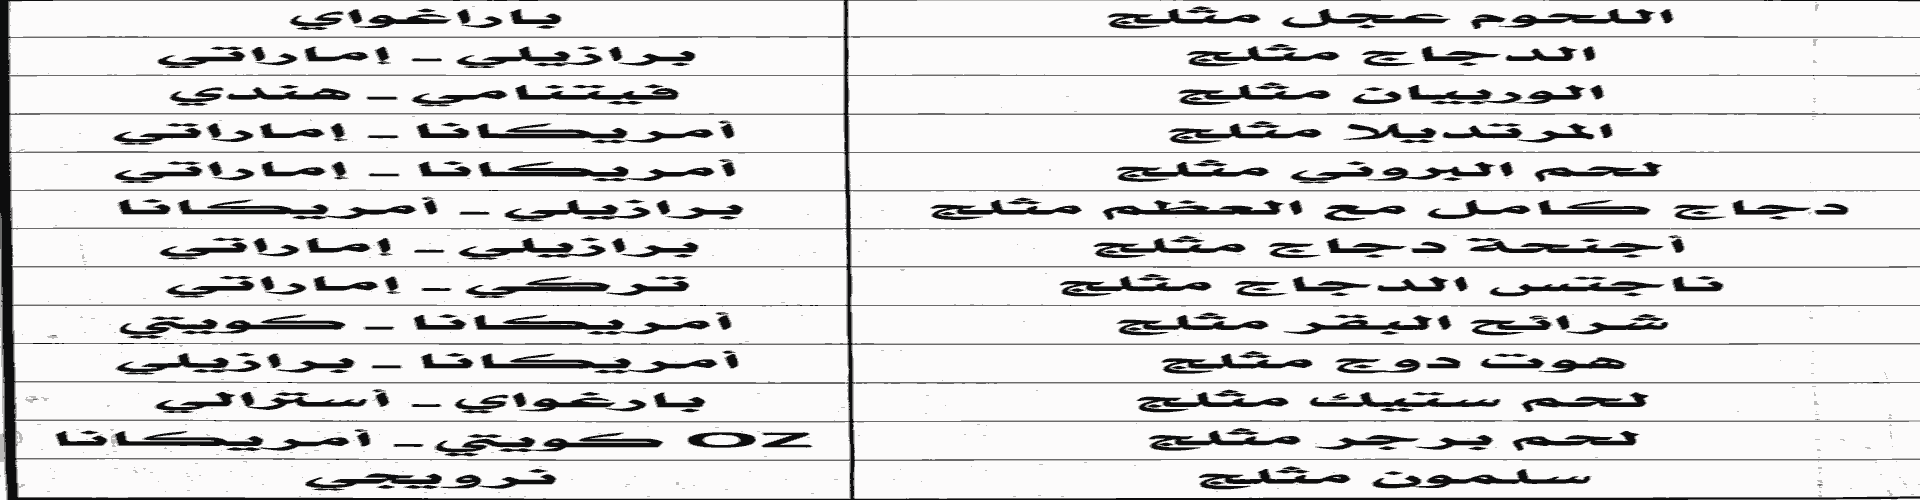 اللحوم عجل مثلج باراغواي
الدجاج مثلج برازيلي - إماراتي
الوربيان مثلج فيتنامي - هندي
المرتديلا مثلج أمريكانا - إماراتي
لحم البروني مثلج أمريكانا - إماراتي
دجاج كامل مع العظم مثلج برازيلي - أمريكانا
أجنحة دجاج مثلج برازيلي - إماراتي
ناجتس الدجاج مثلج تركي - إماراتي
شرائح البقر مثلج أمريكانا - كويتي
هوت دوج مثلج أمريكانا - برازيلي
لحم ستيك مثلج بارغواي - أسترالي
لحم برجر مثلج OZ كويتي - أمريكانا
سلمون مثلج نرويجي